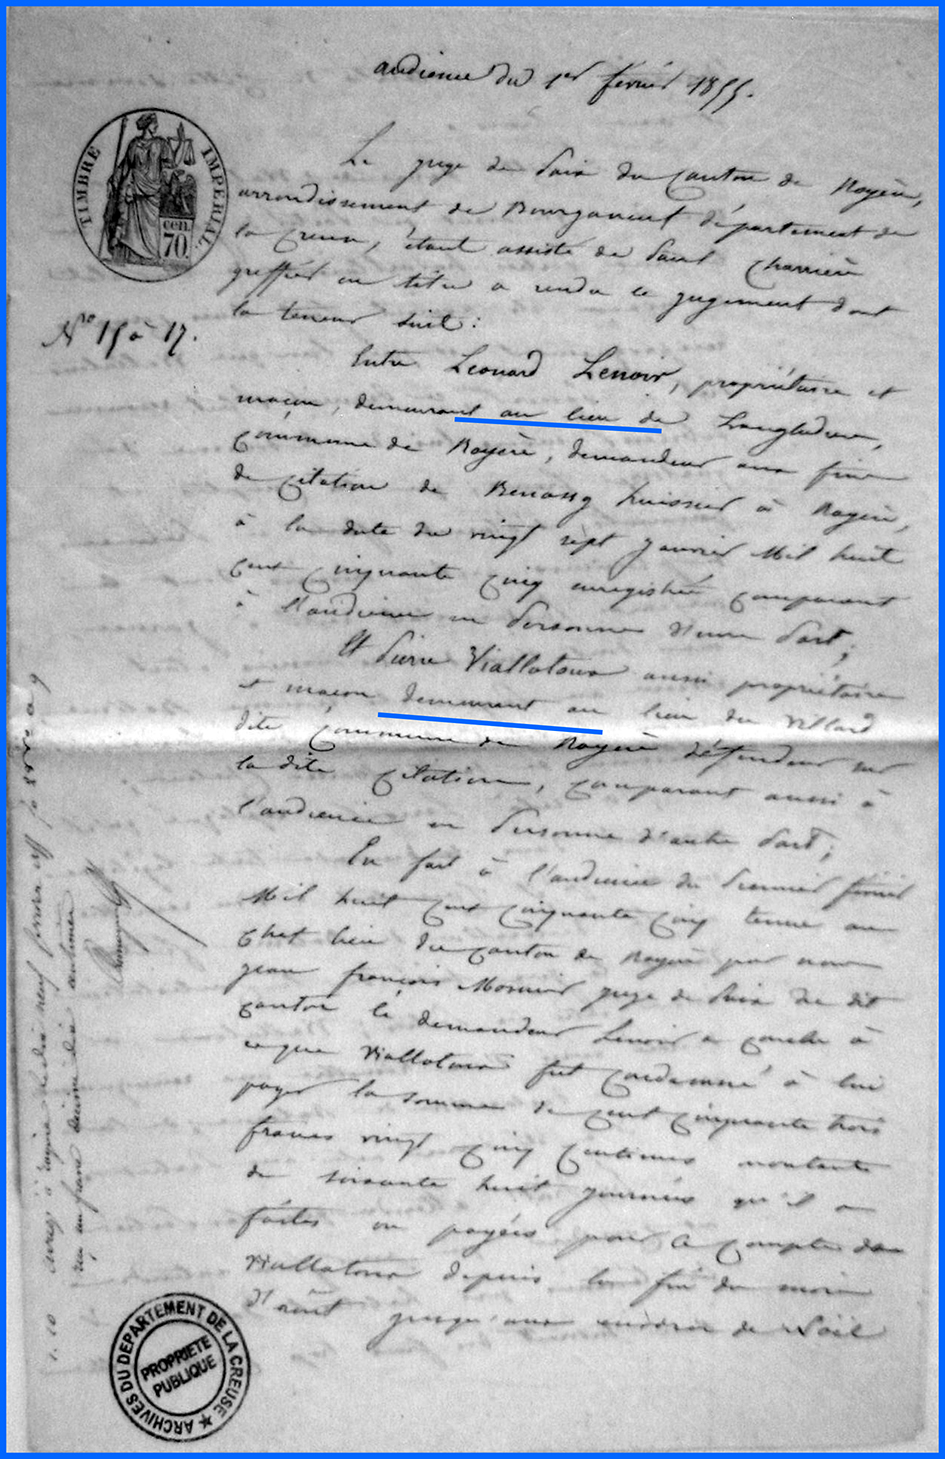 audience du 1er février 1855.
TIMBRE IMPERIAL
cen. 70.
Le juge de Paix du Canton de Royère,
arrondissement de Bourganeuf département de
la Creuse, étant assisté de Paul Charrière
greffier en titre a rendu le jugement dont
la teneur suit :
No 15 à 17.
Entre Léonard Lenoir, propriétaire et
maçon, demeurant au lieu de
commune de Royère, demandeur aux fins
de citation de Benassy huissier à Royère,
à la date du vingt sept janvier Mil huit
cent cinquante cinq enregistrée comparant
à l'audience en personne d'une part ;
Et Pierre Viallatoux aussi propriétaire
et maçon demeurant au lieu du Villard
dite Commune de Royère défendeur sur
la dite citation, comparant aussi à
l'audience en personne d'autre part ;
En fait à l'audience du premier février
Mil huit cent cinquante cinq tenue au
chef lieu du canton de Royère par nous
jean françois juge de Paix du dit
canton le demandeur Lenoir a conclu à
ce que Viallatoux fut condamné à lui
payer la somme de cent cinquante trois
francs vingt cinq centimes montante
de soixante huit journées qu'il a
faites ou payées pour le compte du
Viallatoux depuis la fin du mois
d'août jusqu'aux de
ARCHIVES DU DEPARTEMENT DE LA CREUSE
PROPRIETE
PUBLIQUE